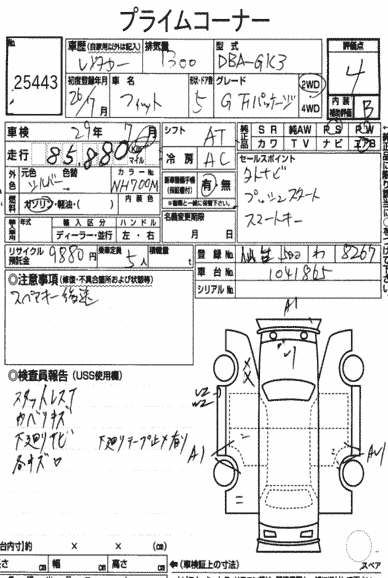 プライムコーナー
No.
25443
車歴 (自家用以外は記入)
レンタカー
排気量
1300
型式
DBA-GK3
評価点
4
初度登録年月
26/7月
車名
フィット
形状・ドア数
5
グレード
G Fパッケージ
2WD
4WD
内装
補助評価
B
車検
29年 7月
シフト
AT
純正品
SR 純AW PS PW
カワ TV ナビ エアB
走行
85,880
Km
マイル
冷房
AC
セールスポイント
外色
元色
シルバー
色替
カラーNo.
NH700M
有・無
ナビ
プッシュスタート
スマートキー
燃料
ガソリン・軽油・( )
内装色
名義変更期限
月 日
輸入区分
ハンドル
ディーラー・並行
左・右
リサイクル預託金
9880円
乗車定員
5人
積載量
t
登録No.
仙台 500 わ 8267
車台No.
1041865
シリアルNo.
◎注意事項 (修復・不具合箇所および状態等)
スペアキー後送
A1
◎検査員報告 (USS使用欄)
スタットレスT
下廻りサビ
A1
(台内寸)約 × × (cm)
長さ cm 幅 cm 高さ cm
(車検証上の寸法)
スペア